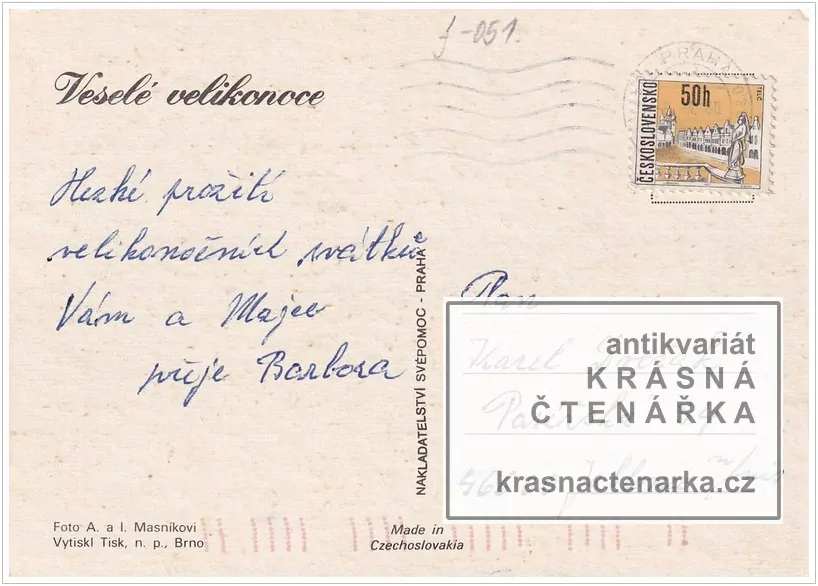 f-051.
PRAHA
ČESKOSLOVENSKO
50h
TELČ
Veselé velikonoce
Hezké prožití
velikonočních svátků
Vám a Majce
přeje Barbora
NAKLADATELSTVÍ SVÉPOMOC - PRAHA
Pan
Karel
antikvariát
KRÁSNÁ
ČTENÁŘKA
krasnactenarka.cz
Foto A. a I. Masníkovi
Vytiskl Tisk, n. p., Brno
Made in
Czechoslovakia